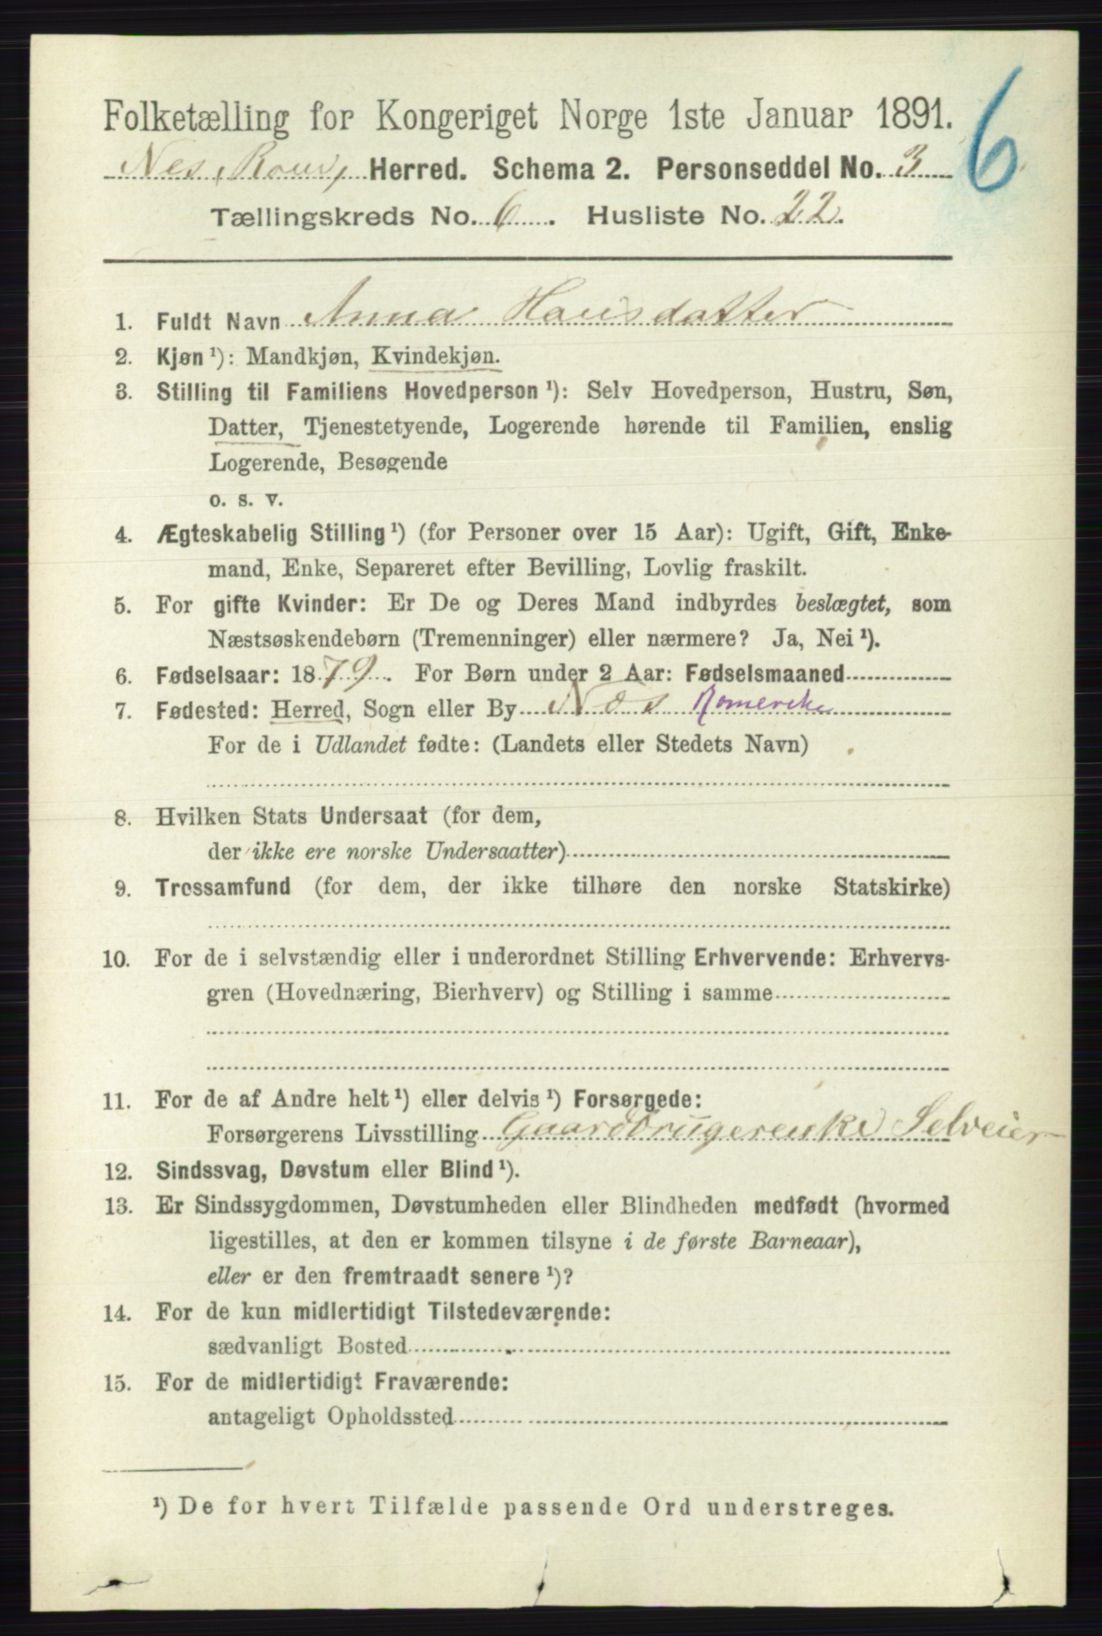 Folketælling for Kongeriget Norge 1ste Januar 1891.
6
Nes, Rom, Herred. Schema 2. Personseddel No. 3
Tællingskreds No. 6. Husliste No. 22.
1. Fuldt Navn Anna Hansdatter
2. Kjøn ¹): Mandkjøn, Kvindekjøn.
3. Stilling til Familiens Hovedperson ¹): Selv Hovedperson, Hustru, Søn,
Datter, Tjenestetyende, Logerende hørende til Familien, enslig
Logerende, Besøgende
o. s. v.
4. Ægteskabelig Stilling ¹) (for Personer over 15 Aar): Ugift, Gift, Enke-
mand, Enke, Separeret efter Bevilling, Lovlig fraskilt.
5. For gifte Kvinder: Er De og Deres Mand indbyrdes beslægtet, som
Næstsøskendebørn (Tremenninger) eller nærmere? Ja, Nei ¹).
6. Fødselsaar: 1879. For Børn under 2 Aar: Fødselsmaaned
7. Fødested: Herred, Sogn eller By Næs Romerike
For de i Udlandet fødte: (Landets eller Stedets Navn)
8. Hvilken Stats Undersaat (for dem,
der ikke ere norske Undersaatter)
9. Trossamfund (for dem, der ikke tilhøre den norske Statskirke)
10. For de i selvstændig eller i underordnet Stilling Erhvervende: Erhvervs-
gren (Hovednæring, Bierhverv) og Stilling i samme
11. For de af Andre helt ¹) eller delvis ¹) Forsørgede:
Forsørgerens Livsstilling Gaardbrugerenke Selveier
12. Sindssvag, Døvstum eller Blind ¹).
13. Er Sindssygdommen, Døvstumheden eller Blindheden medfødt (hvormed
ligestilles, at den er kommen tilsyne i de første Barneaar),
eller er den fremtraadt senere ¹)?
14. For de kun midlertidigt Tilstedeværende:
sædvanligt Bosted
15. For de midlertidigt Fraværende:
antageligt Opholdssted
¹) De for hvert Tilfælde passende Ord understreges.